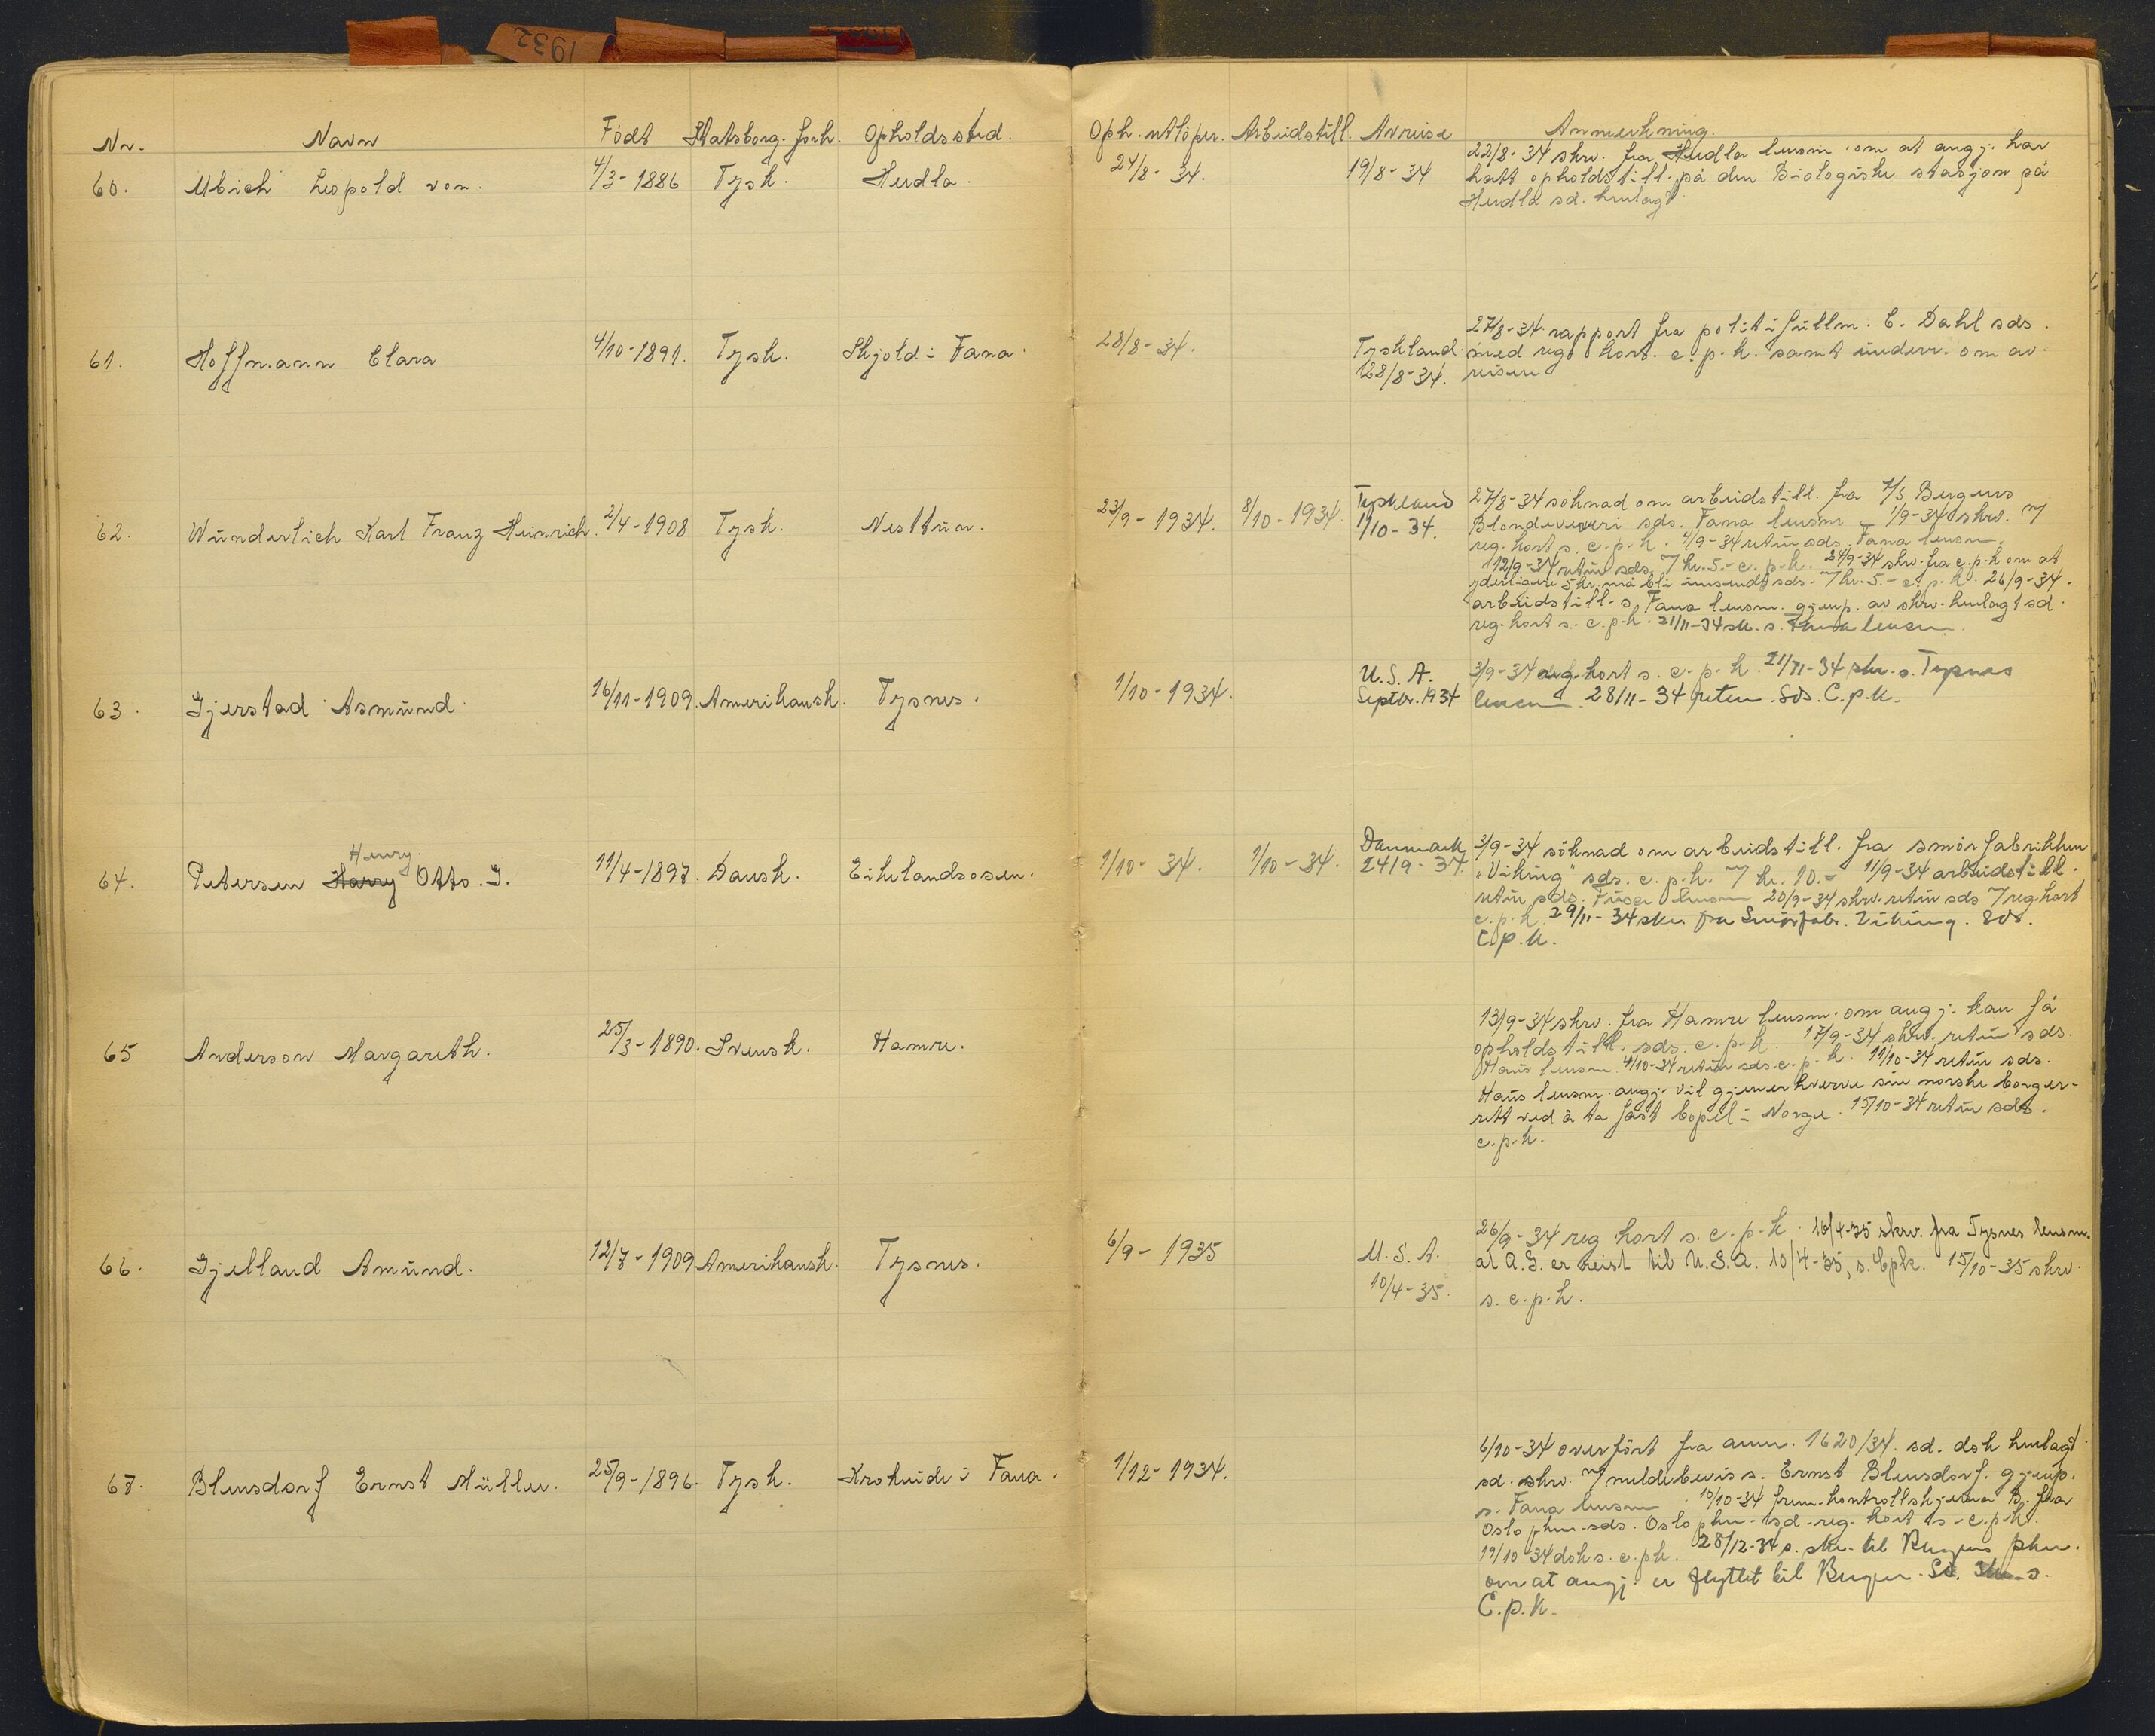 1932
Nr. Navn Födt Statsborg. forh. Opholdssted. Oph. utlöper. Arbeidstill. Avreise Anmerkning.
60. Ubich Leopold von. 4/3-1886 Tysk. Herdla. 24/8-34. 19/8-34
22/8-34 skrv. fra Herdla lensm. om at angj. har
hatt opholdstill. på den Biologiske stasjon på
Herdla sd. henlagt.
61. Hoffmann Clara 4/10-1891. Tysk. Skjold i Fana. 28/8-34.
Tyskland
28/8-34.
27/8-34 rapport fra politifullm. C. Dahl sds.
med reg. kort. c.p.k. samt underr. om av-
reisen
62. Wünderlich Karl Franz Heinrich. 2/4-1908 Tysk. Nesttün. 23/9-1934. 8/10-1934.
Tyskland
1/10-34.
27/8-34 söknad om arbeidstill. fra A/S Bergens
Blondeveveri sds. Fana lensm. 1/9-34 skrv. m/
reg. kort s. c.p.k. 4/9-34 retür sds. Fana lensm.
12/9-34 retür sds. m/ kr. 5.- c.p.k. 24/9-34 skrv. fra c.p.k om at
yderligere 5 kr. må bli innsendt sds. m/ kr. 5.- c.p.k. 26/9-34.
arbeidstill. s. Fana lensm. gjenp. av skrv. henlagt sd.
reg. kort s. c.p.k. 21/11-34 sk. s. Fana lensm.
63. Gjerstad Asmünd. 16/11-1909. Amerikansk. Tysnes. 1/10-1934.
U.S.A.
Septbr. 1934
3/9-34 reg. kort s. c.p.k. 21/11-34 skr. s. Tysnes
lensm. 28/11-34 retur. Sds. C.p.k.
64. Petersen Harry Otto. J. 11/4-1897. Dansk. Eikelandsosen. 1/10-34. 1/10-34.
Henry.
Danmark
24/9-34.
3/9-34 söknad om arbeidstill. fra smörfabrikken
"Viking" sds. c.p.k. m/ kr. 10.- 11/9-34 arbeidstill.
retür sds. Füsa lensm 20/9-34 skrv. retür sds m/ reg. kort
c.p.k. 29/11-34 skr. fra Smörfabr. Viking. Sds.
C.p.k.
65 Anderson Margareth. 25/3-1890. Svensk. Hamre.
13/9-34 skrv. fra Hamre lensm. om angj. kan få
opholdstill. sds. c.p.k. 17/9-34 skrv. retür sds.
Haus lensm. 4/10-34 retür sds. c.p.k. 11/10-34 retür sds.
Haüs lensm. angj. vil gjenerhverve sin norske borger-
rett ved å ta fast bopel i Norge. 15/10-34 retür sds.
c.p.k.
66. Gjelland Amünd. 12/7-1909 Amerikansk. Tysnes. 6/9-1935
U.S.A.
10/4-35.
26/9-34 reg kort s. c.p.k. 16/4-35 skrv. fra Tysnes lensm.
at A.G. er reist til U.S.A. 10/4-35, s. Cpk. 15/10-35 skrv.
s. c.p.k.
67. Blensdorf Ernst Müller. 25/9-1896. Tysk. Krokeide i Fana. 1/12-1934.
6/10-34 overfört fra ann. 1620/34. sd. dok henlagt.
sd. skrv. m/ meldebevis s. Ernst Blensdorf. gjenp.
s. Fana lensm 10/10-34 frem. kontrollskjema B. fra
Oslo pkm. sds. Oslo pkm. sd. reg. kort s. c.p.k.
19/10-34 dok s. c.p.k. 28/12-34 s. skr. til Bergens pkm.
om at angj. er flyttet til Bergen. Sd. skr. s.
C.p.k.